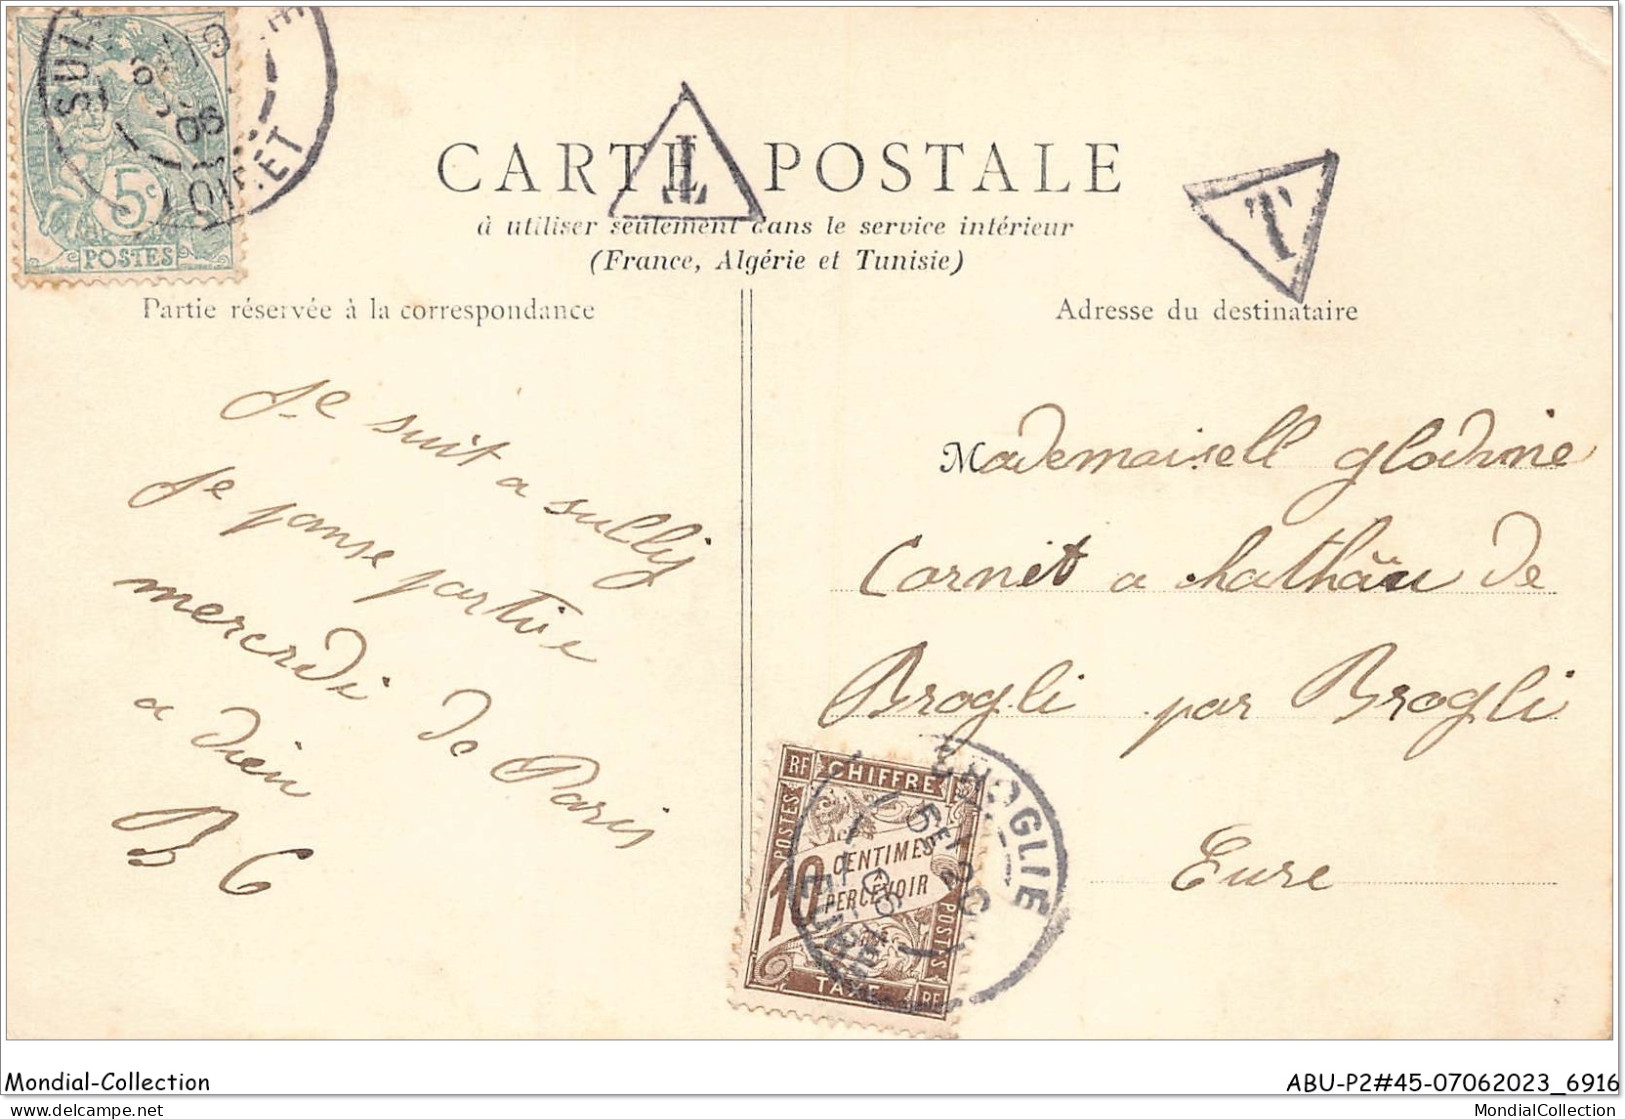 SUL
LOIRET
5c
POSTES
CARTE POSTALE
T
T
à utiliser seulement dans le service intérieur
(France, Algérie et Tunisie)
Partie réservée à la correspondance
Adresse du destinataire
Je suit a sully
Je panse partire
mercredi de Paris
a dieu
B C
Mademaisell glodine
Cornet a chathâu de
Brogli par Brogli
Eure
RF CHIFFRE
POSTES
10 CENTIMES
A PERCEVOIR
POSTES
TAXE RF
BROGLIE
EURE
Mondial-Collection
ABU-P2#45-07062023_6916
www.delcampe.net
MondialCollection